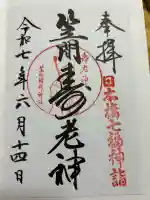 奉拝
日本橋七福神詣
笠間寿老神
令和七年六月十四日